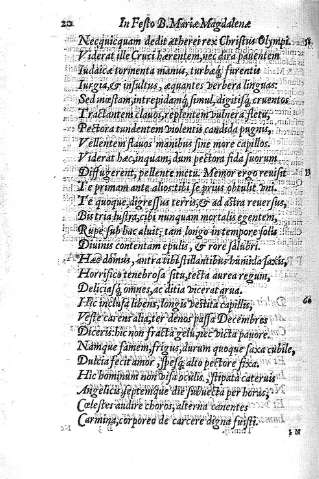 20 In Festo B. Mariæ Magdalenæ
Necquicquam dedit ætherei rex Christus Olympi.
Viderat ille Cruci hærentem, nec dira pauentem
Iudaicæ tormenta manus, turbæq; furentis
Iurgia, & insultus, æquantes verbera linguas:
Sed mæstam, intrepidamq; simul, digitisq; cruentos
Tractantem clauos, replentem vulnera fletu,
Pectora tundentem violentis candida pugnis,
Vellentem flauos manibus sine more capillos.
Viderat hæc, inquam, dum pectora fida suorum
Diffugerent, pellente metu. Memor ergo reuisit
Te primam ante alios: tibi se prius obtulit vni.
Te quoque, digressus terris, & ad astra reuersus,
Bis tria lustra, cibi nunquam mortalis egentem,
Rupe sub hac aluit: tam longo in tempore solis
Diuinis contentam epulis, & rore salubri.
Hæc domus, antra tibi stillantibus humida saxis,
Horrifico tenebrosa situ, tecta aurea regum,
Deliciasq; omnes, ac ditia vicerat arua.
Hic inclusa libens, longis vestita capillis,
Veste carens alia, ter denos passa Decembres
Diceris: hic non fracta gelu, nec victa pauore.
Namque famem, frigus, durum quoque saxa cubile,
Dulcia fecit amor, spesq; alto pectore fixa.
Hic hominum non visa oculis, stipata cateruis
Angelicis, septemque die subuecta per horas,
Cælestes audire choros, alterna canentes
Carmina, corporeo de carcere digna fuisti.